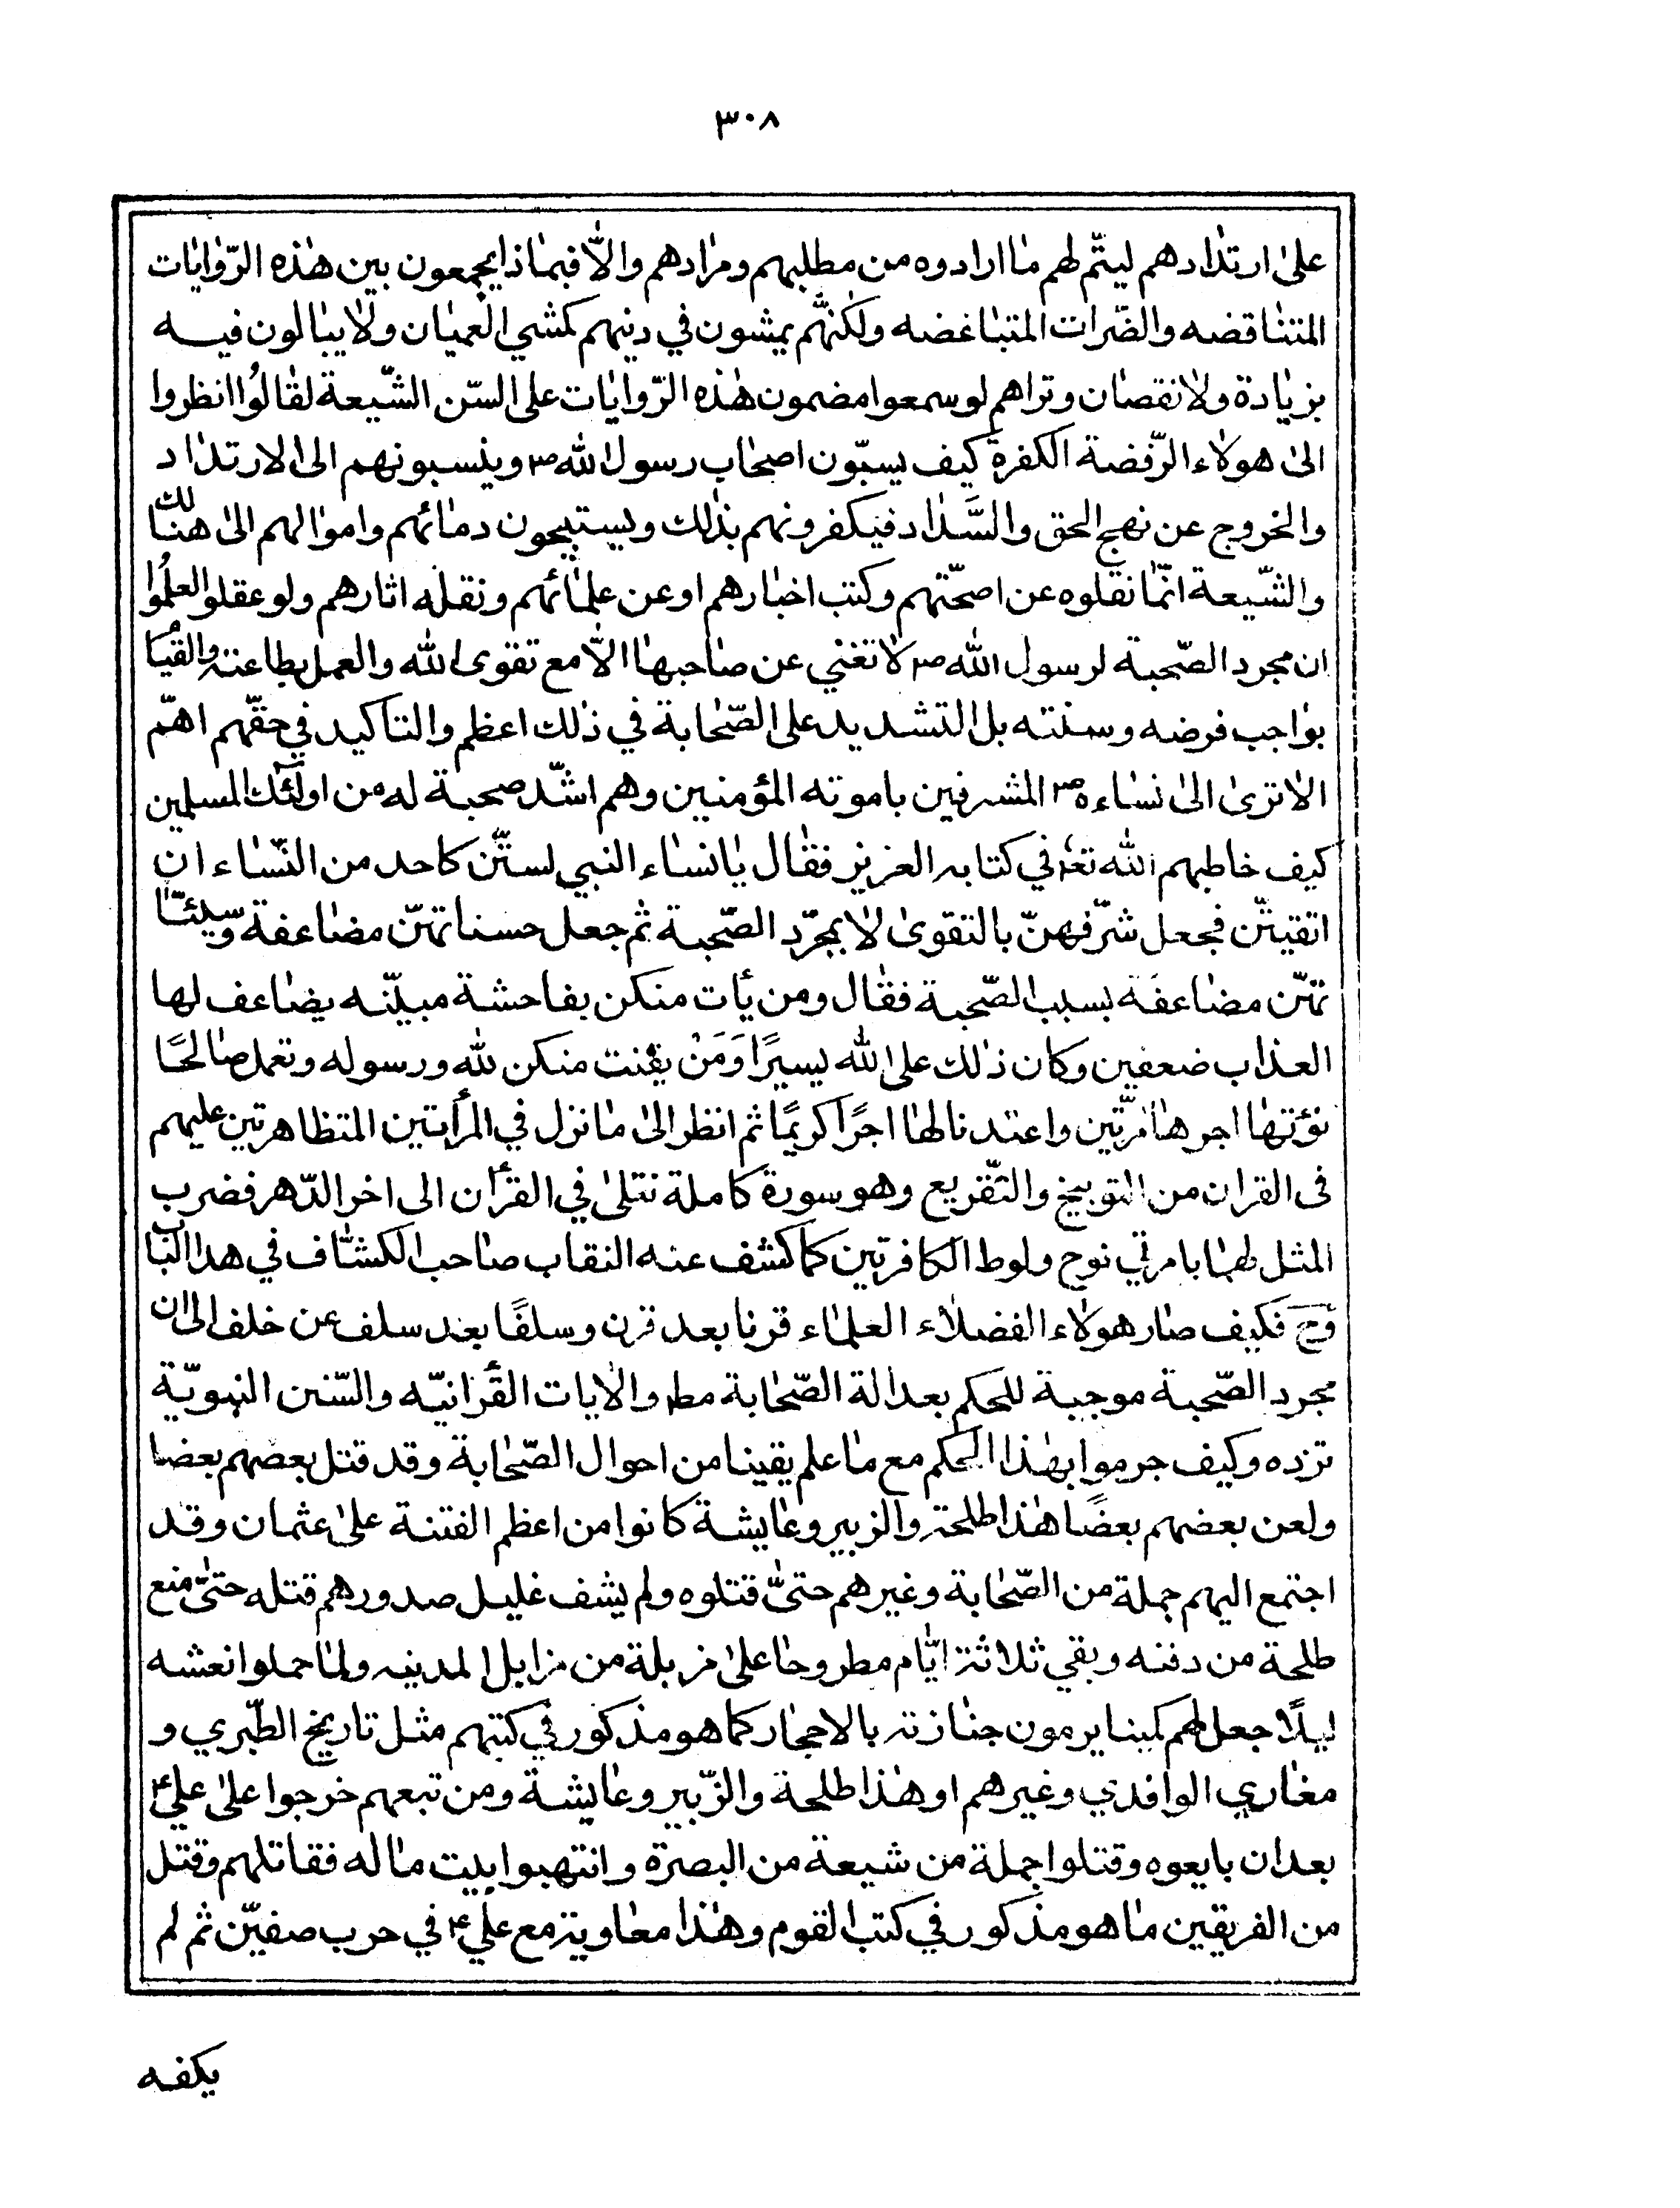 ٣٠٨
على ارتدادهم ليتّم لهم ما ارادوه من مطلبهم ومرادهم والّا فبماذا يجمعون بين هذه الرّوايات
المتناقضه والضّرات المتباغضه ولكنّهم يمشون في دينهم كمشي العميان ولا يبالون فيه
بزيادة ولا نقصان وتراهم لو سمعوا مضمون هذه الرّوايات على السّن الشّيعة لقالوُا انظروا
الى هولاء الرّفضة الكفرة كيف يسبّون اصحاب رسول الله ص وينسبونهم الى الارتداد
والخروج عن نهج الحق والسَّداد فيكفرونهم بذلك ويستبيحون دمائهم واموالهم الى هنالك
والشّيعة انّما نقلوه عن اصحّتهم وكتب اخبارهم او عن علمائهم ونقله اثارهم ولو عقلوا لعلمُوا
ان مجرد الصّحبة لرسول الله ص لا تغني عن صاحبها الّا مع تقوى الله والعمل بطاعته والقيام
بواجب فرضه وسنته بل التشديد على الصّحابة في ذلك اعظم والتاكيد في حقّهم اهمّ
الا ترى الى نساءه ص المشرفين باموته المؤمنين وهم اشّد صحبة له من اولئك المسلمين
كيف خاطبهم الله تعه في كتابه العزيز فقال يا نساء النبي لستّن كاحد من النّساء ان
اتقيتّن فجعل شرّفهنّ بالتقوى لا بمجرّد الصّحبة ثم جعل حسناتهنّ مضاعفة وسّيئا
تهّن مضاعفَة بسبب الصّحبة فقال ومن يأت منكن بفاحشة مبيّنه يضاعف لها
العذاب ضعفين وكان ذلك على الله يسيرًا وَمَنْ يقنت منكن لله ورسوله وتعمل صالحًا
نؤتها اجرها مرّتين واعتدنا لها اجرًا كريمًا ثم انظر الى ما نزل في المرأتين المتظاهرتين عليهم
فى القران من التوبيخ والتّقريع وهو سورة كاملة تتلى في القرأن الى اخر الدّهر فضرب
المثل لهما بامرتي نوح ولوط الكافرتين كما كشف عنه النقاب صاحب الكشّاف في هذا الباب
وح فكيف صار هولاء الفضلاء العلماء قرنا بعد قرن وسلفًا بعد سلف عن خلف الى ان
مجرد الصّحبة موجبة للحكم بعدالة الصّحابة مط والايات القرأنيّه والسّنن النبويّة
تزده وكيف جرموا بهذا الحكم مع ما علم يقينا من احوال الصّحابة وقد قتل بعضهم بعضا
ولعن بعضهم بعضًا هذا طلحة والزبير وعايشة كانوا من اعظم الفتنة على عثمان وقد
اجتمع اليهم جملة من الصّحابة وغيرهم حتىّ قتلوه ولم يشف غليل صدورهم قتله حتىّ منع
طلحة من دفنه وبقي ثلاثة ايّام مطروحا على مزبلة من مزابل المدينه ولما حملوا نعشه
ليلًا جعل لهم كمينا يرمون جنازته بالاحجار كما هو مذكور في كتبهم مثل تاريخ الطّبري و
مغاري الوافدي وغيرهم او هذا طلحة والزّبير وعايشة ومن تبعهم خرجوا على علي ع
بعد ان بايعوه وقتلوا جملة من شيعة من البصرة وانتهبوا بيت ماله فقاتلهم وقتل
من الفريقين ما هو مذكور في كتب القوم وهذا معاوية مع علي ع في حرب صفيّن ثم لم
يكفه